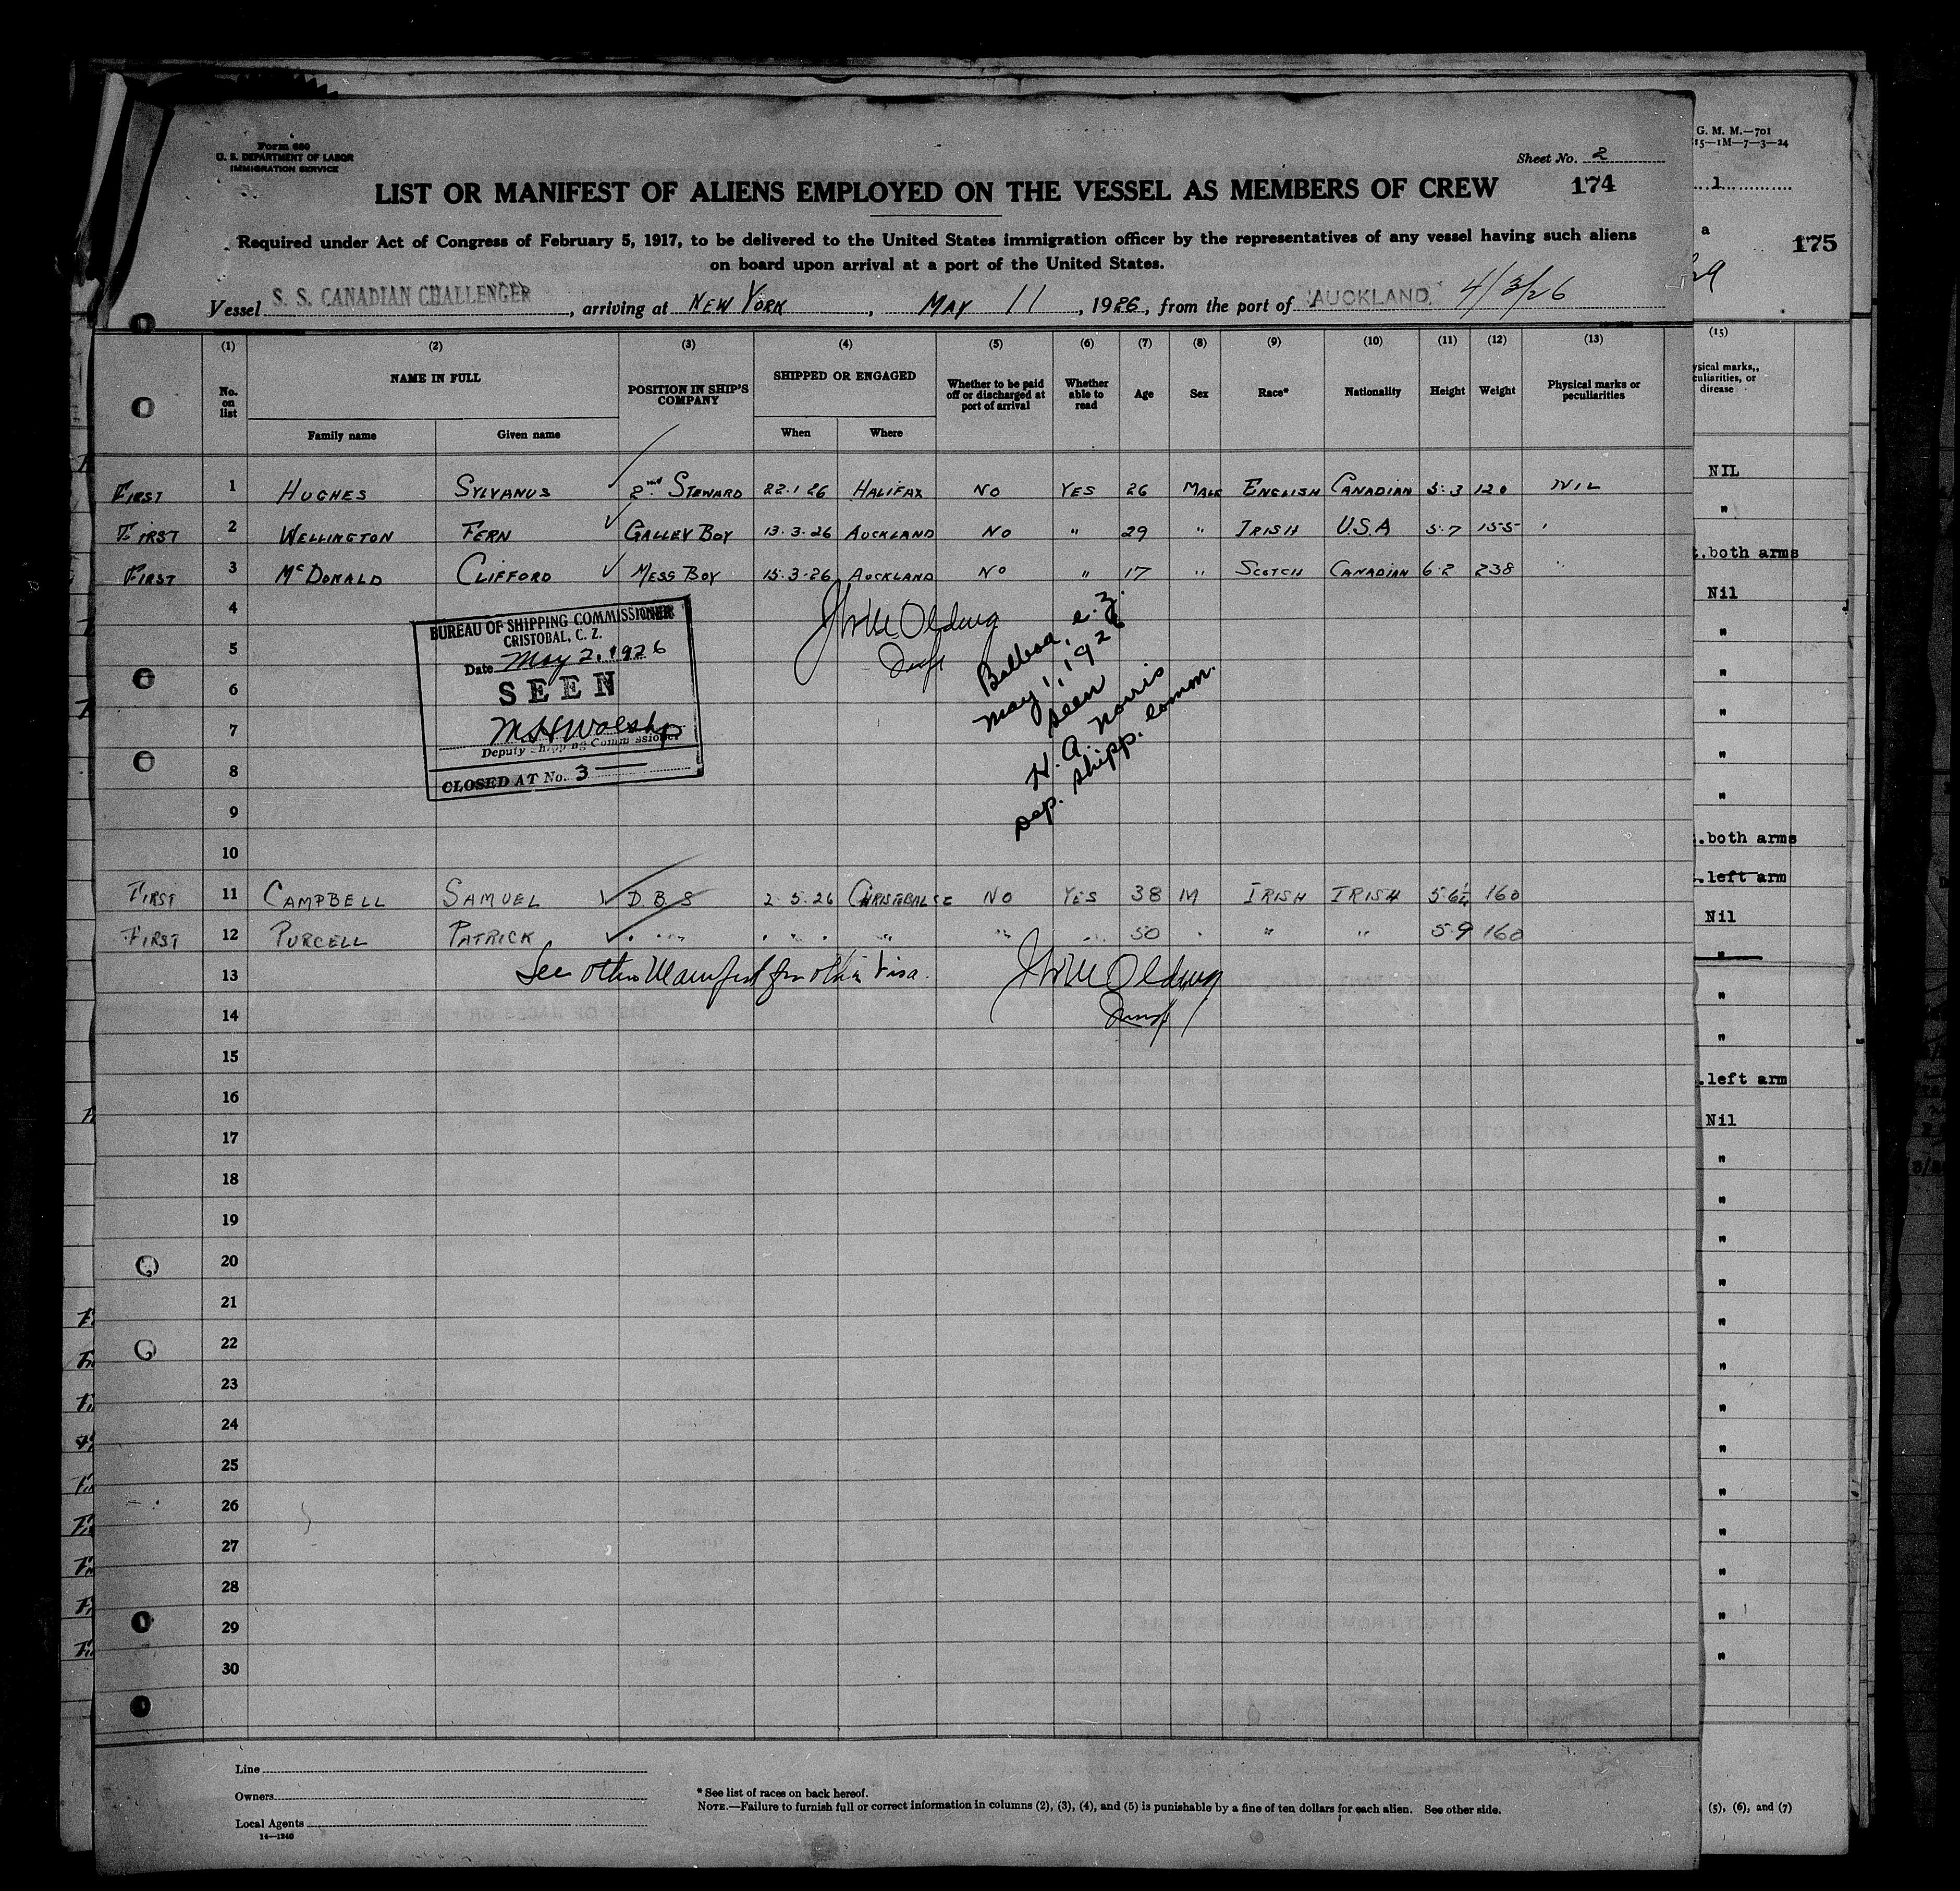 Form 680
U. S. DEPARTMENT OF LABOR
IMMIGRATION SERVICE
Sheet No. 2
LIST OR MANIFEST OF ALIENS EMPLOYED ON THE VESSEL AS MEMBERS OF CREW
174
Required under Act of Congress of February 5, 1917, to be delivered to the United States immigration officer by the representatives of any vessel having such aliens
on board upon arrival at a port of the United States.
Vessel S. S. CANADIAN CHALLENGER, arriving at NEW YORK, MAY 11, 1926, from the port of AUCKLAND 4/3/26
(1) (2) (3) (4) (5) (6) (7) (8) (9) (10) (11) (12) (13)
No. on list
NAME IN FULL
Family name
Given name
POSITION IN SHIP'S COMPANY
SHIPPED OR ENGAGED
When
Where
Whether to be paid off or discharged at port of arrival
Whether able to read
Age
Sex
Race*
Nationality
Height
Weight
Physical marks or peculiarities
FIRST 1 HUGHES SYLVANUS 2nd STEWARD 22.1.26 HALIFAX NO YES 26 MALE ENGLISH CANADIAN 5.3 120 NIL
FIRST 2 WELLINGTON FERN GALLEY BOY 13.3.26 AUCKLAND NO " 29 " IRISH U.S.A 5.7 155 "
FIRST 3 McDONALD CLIFFORD MESS BOY 15.3.26 AUCKLAND NO " 17 " SCOTCH CANADIAN 6.2 238 "
4
5
6
7
8
9
10
BUREAU OF SHIPPING COMMISSIONER
CRISTOBAL, C. Z.
Date May 2, 1926
SEEN
Deputy Shipping Commissioner
CLOSED AT No. 3
Olding
Balboa, C. Z.
May 1, 1926
Seen
H. A. Norris
Dep. Shipp. Comm.
FIRST 11 CAMPBELL SAMUEL D B S 2.5.26 CHRISTOBAL CZ NO YES 38 M IRISH IRISH 5.6½ 160
FIRST 12 PURCELL PATRICK " " " " " 50 " " " 5.9 160
13 See other Manifest for other Visa. Olding
14
15
16
17
18
19
20
21
22
23
24
25
26
27
28
29
30
Line
Owners
Local Agents
14—1240
* See list of races on back hereof.
NOTE.—Failure to furnish full or correct information in columns (2), (3), (4), and (5) is punishable by a fine of ten dollars for each alien. See other side.
G. M. M.—701
15—1M—7—3—24
1
a
175
(15)
ysical marks,
culiarities, or
disease
NIL
"
.both arms
Nil
"
"
"
"
"
.both arms
.left arm
Nil
"
"
"
.left arm
Nil
"
"
"
"
"
"
"
"
"
"
"
"
"
"
(5), (6), and (7)